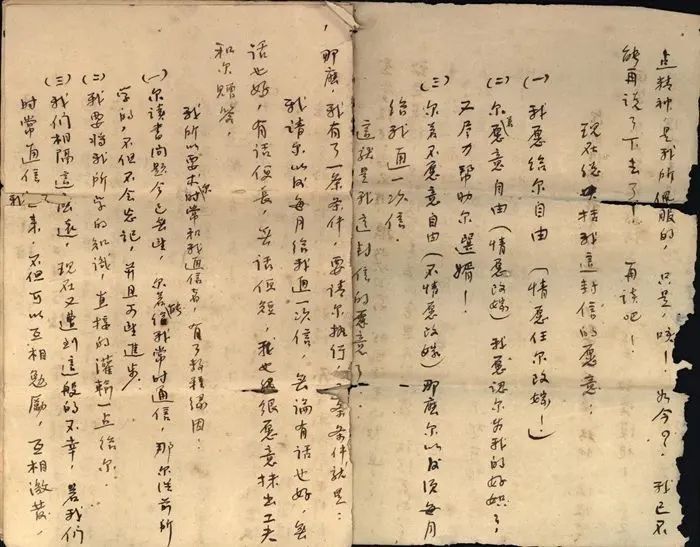 点精神，是我所佩服的，只是，唉！如今？，我已不
能再说了下去了！　再谈吧！
现在总括我这一封信的意思：
(一)我愿给尔自由（情愿任尔改嫁！）
(二)尔愿意自由（情愿改嫁）我愿认尔为我的好妹，
又尽力帮助尔选婿！
(三)尔若不愿意自由（不情愿改嫁）那么尔以后须每月
给我通一次信．
这就是我这封信的意思了．
那么，我有了一条条件，要请尔执行，条件就是：
我请尔以后每月给我通一次信，无论有话也好，无
话也好，有话便长，无话便短，我也很愿意抹出工夫
和尔赠答，
我所以要求尔时常和我通信者，有了数种缘因：
(一)尔读书问题今已无望，尔若能给我常时通信，那尔从前所
学的，不但不会忘记，并且可望进步．
(二)我要将我所学的知识，直接的灌输一点给尔．
(三)我们相隔这么远，现在又遭到这般的不幸，若我们
时常通信来，不但可以互相勉励，互相激发，